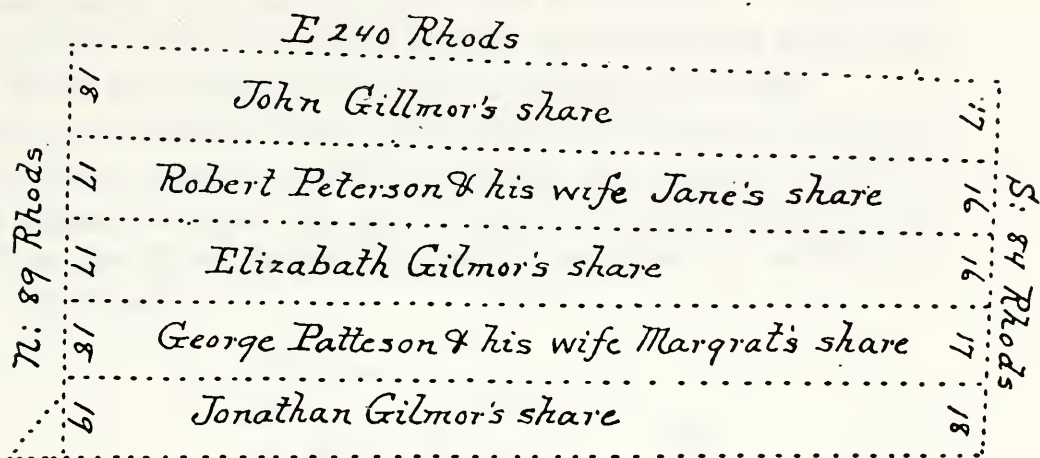 E 240 Rhods
18 John Gillmor's share 17
17 Robert Peterson & his wife Jane's share 16
17 Elizabath Gilmor's share 16
18 George Patteson & his wife Margrat's share 17
19 Jonathan Gilmor's share 18
N: 89 Rhods
S: 84 Rhods